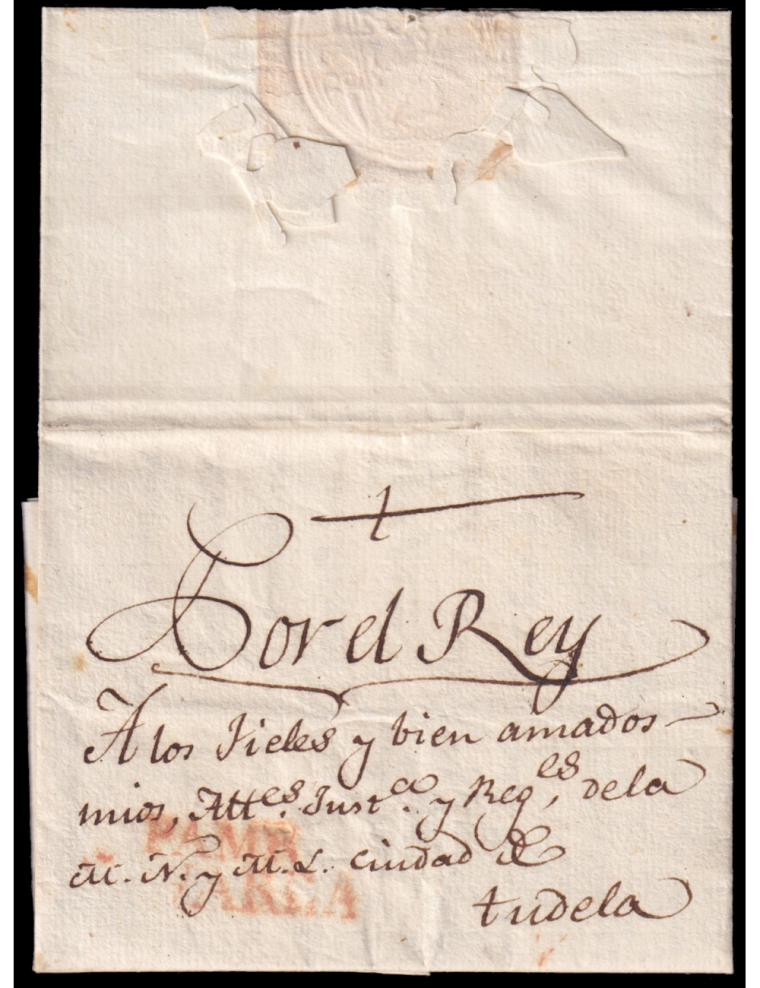 Por el Rey
A los fieles y bien amados
mios, Att.es Just.a y Reg.es, dela
M. N. y M. L. Ciudad de
tudela
PAMP